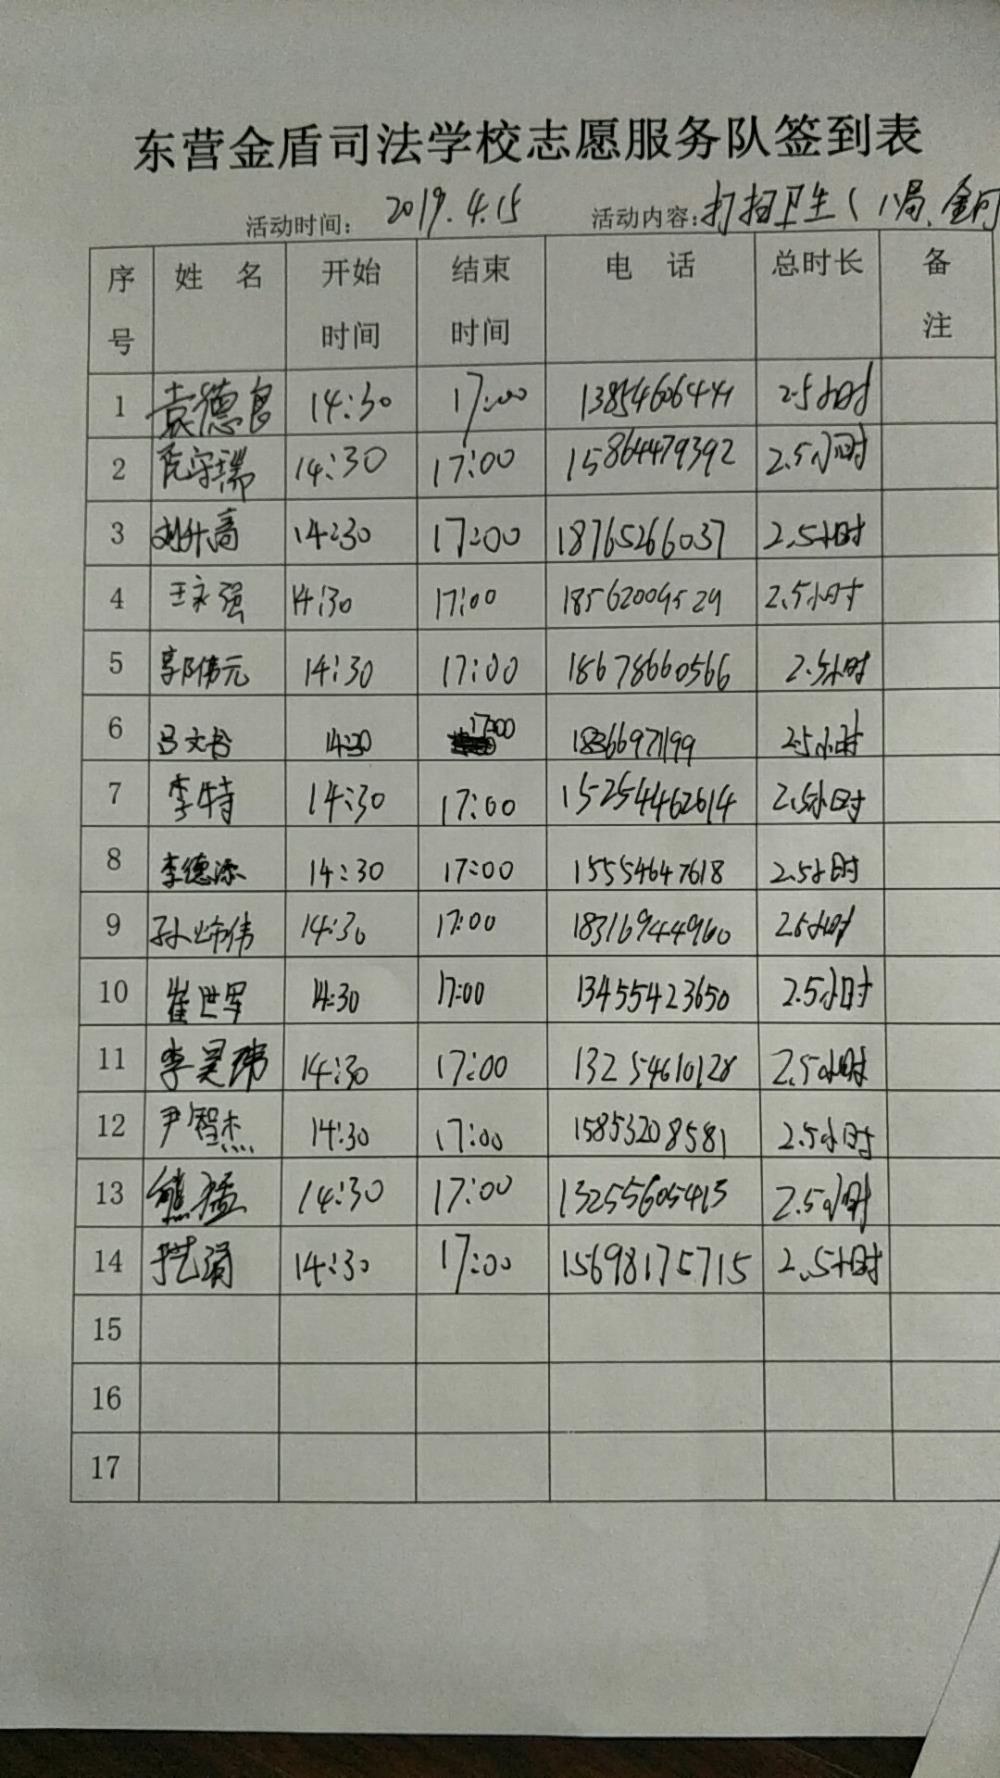 东营金盾司法学校志愿服务队签到表
活动时间： 2019.4.15 活动内容：打扫卫生（八局、金河
序号 姓 名 开始时间 结束时间 电 话 总时长 备注
1 袁德良 14:30 17:00 13854606441 2.5小时
2 守瑞 14:30 17:00 15864479392 2.5小时
3 刘升高 14:30 17:00 18765266037 2.5小时
4 王永强 14:30 17:00 18562009529 2.5小时
5 郭伟元 14:30 17:00 18678660566 2.5小时
6 吕文 14:30 17:00 18366971199 2.5小时
7 李特 14:30 17:00 15254462614 2.5小时
8 李德添 14:30 17:00 15554647618 2.5小时
9 孙伟 14:30 17:00 18316944960 2.5小时
10 崔世军 14:30 17:00 13455423650 2.5小时
11 李昊玮 14:30 17:00 13254610128 2.5小时
12 尹智杰 14:30 17:00 15853208581 2.5小时
13 熊猛 14:30 17:00 13255605413 2.5小时
14 14:30 17:00 15698175715 2.5小时
15
16
17